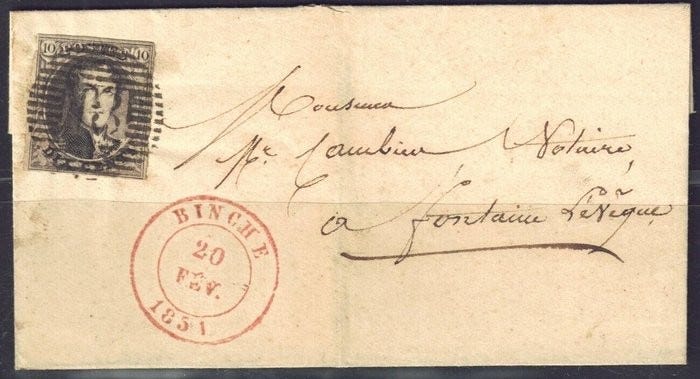 10 10
Monsieur
Mr. Cambier, Notaire,
à fontaine L'évêque
BINCHE
20
FEV.
1851